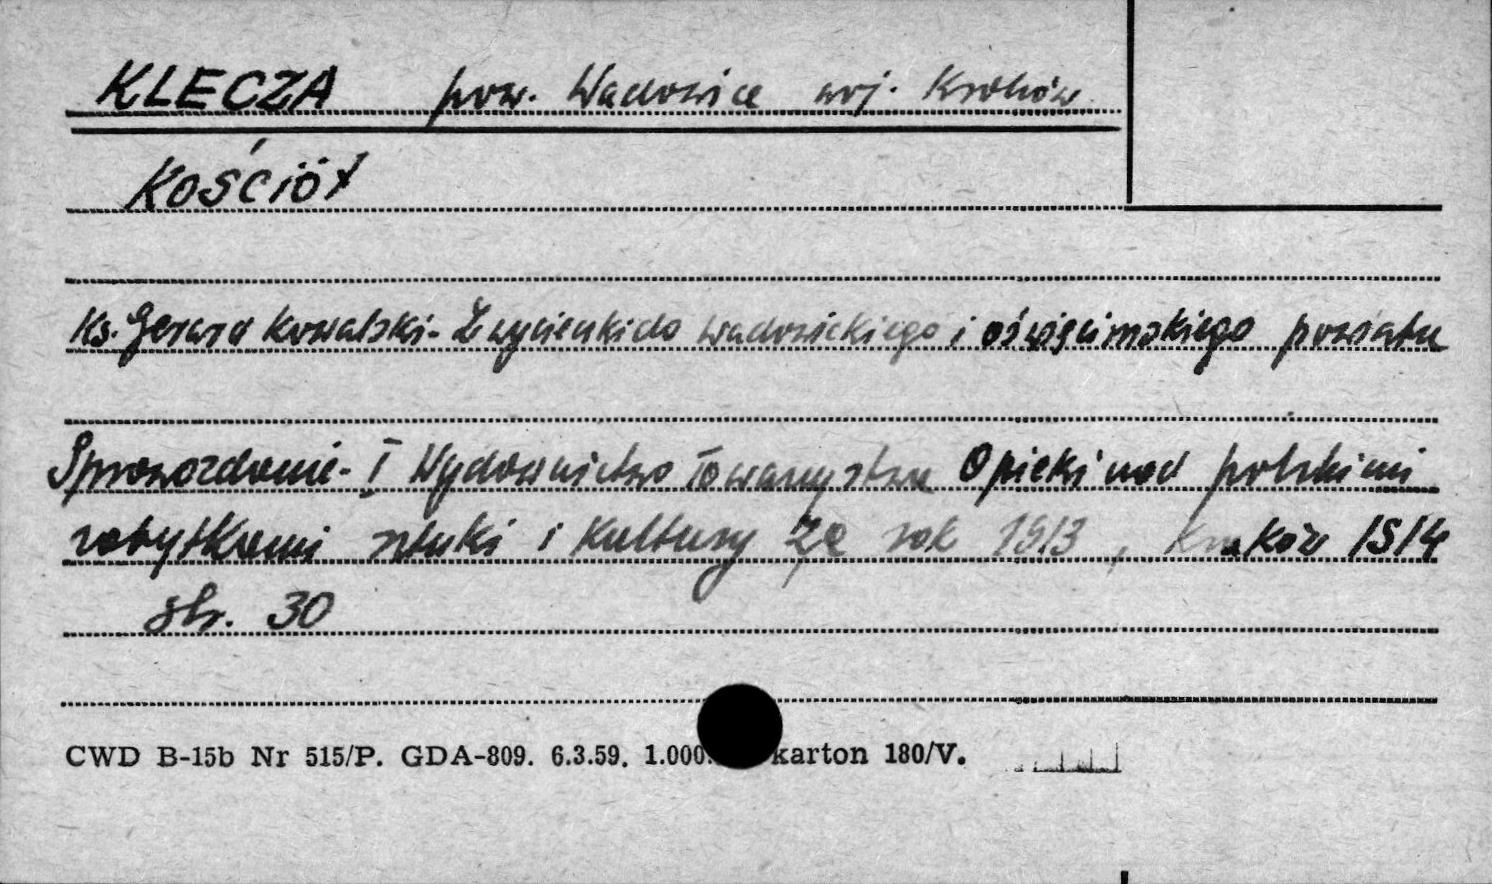 KLECZA pow. Wadowice woj. Kraków
KOŚCIÓŁ
Ks. Gerard Kowalski - Z wycieczki do wadowickiego i oświęcimskiego powiatu
Sprawozdanie - I Wydawnictwo Towarzystwa Opieki nad polskimi
zabytkami sztuki i kultury za rok 1913, Kraków 1914
str. 30
CWD B-15b Nr 515/P. GDA-809. 6.3.59. 1.000. karton 180/V.